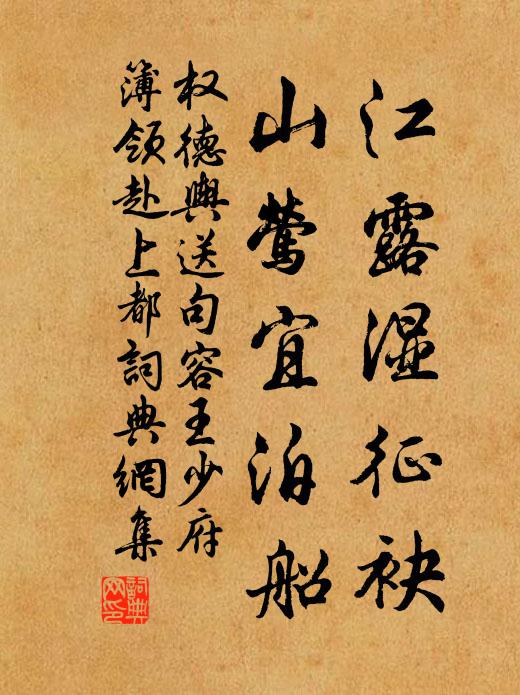 江露湿征袂
山莺宜泊船
权德舆送句容王少府
簿领赴上都词典網集
詞典网印